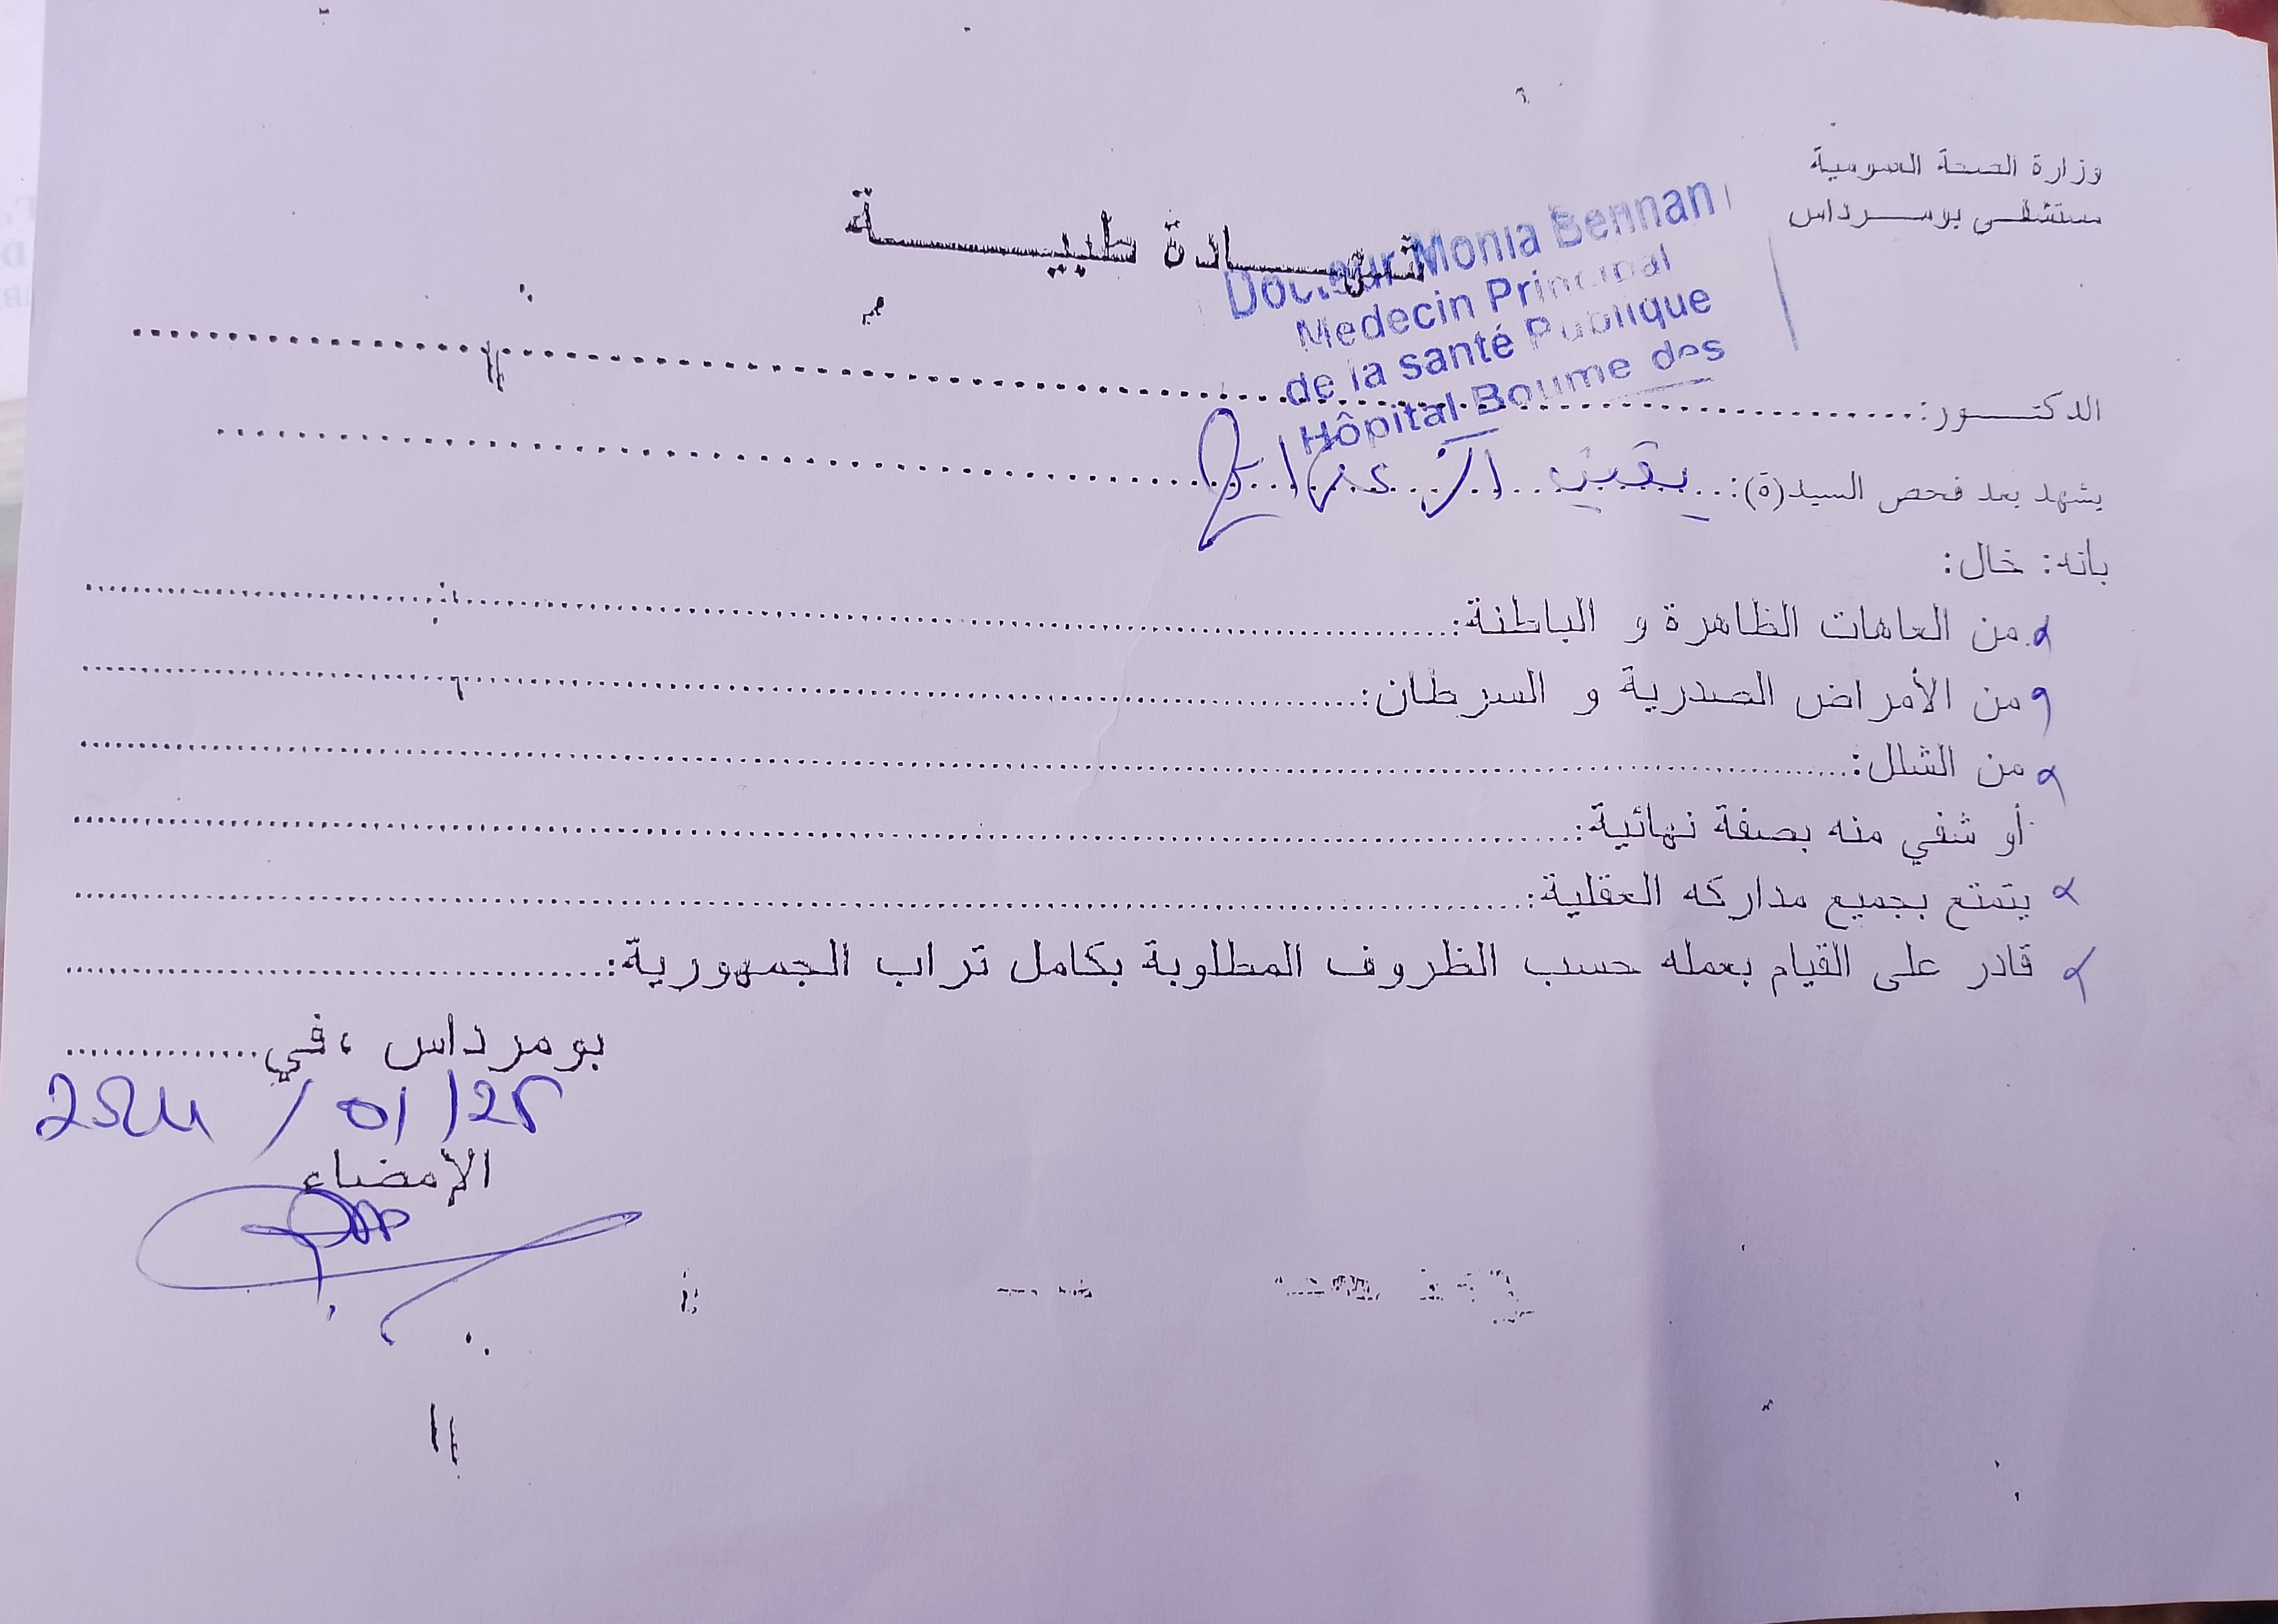 وزارة الصحة العمومية
مستشفى بومرداس
شهادة طبية
Docteur Monia Bennani
Medecin Principal
de la santé Publique
Hôpital Boume des
الدكتور:
يشهد بعد فحص السيد(ة):
بانه: خال:
من العاهات الظاهرة و الباطنة:
من الأمراض الصدرية و السرطان:
من الشلل:
أو شفي منه بصفة نهائية:
يتمتع بجميع مداركه العقلية:
قادر على القيام بعمله حسب الظروف المطلوبة بكامل تراب الجمهورية:
بومرداس ،في
الإمضاء